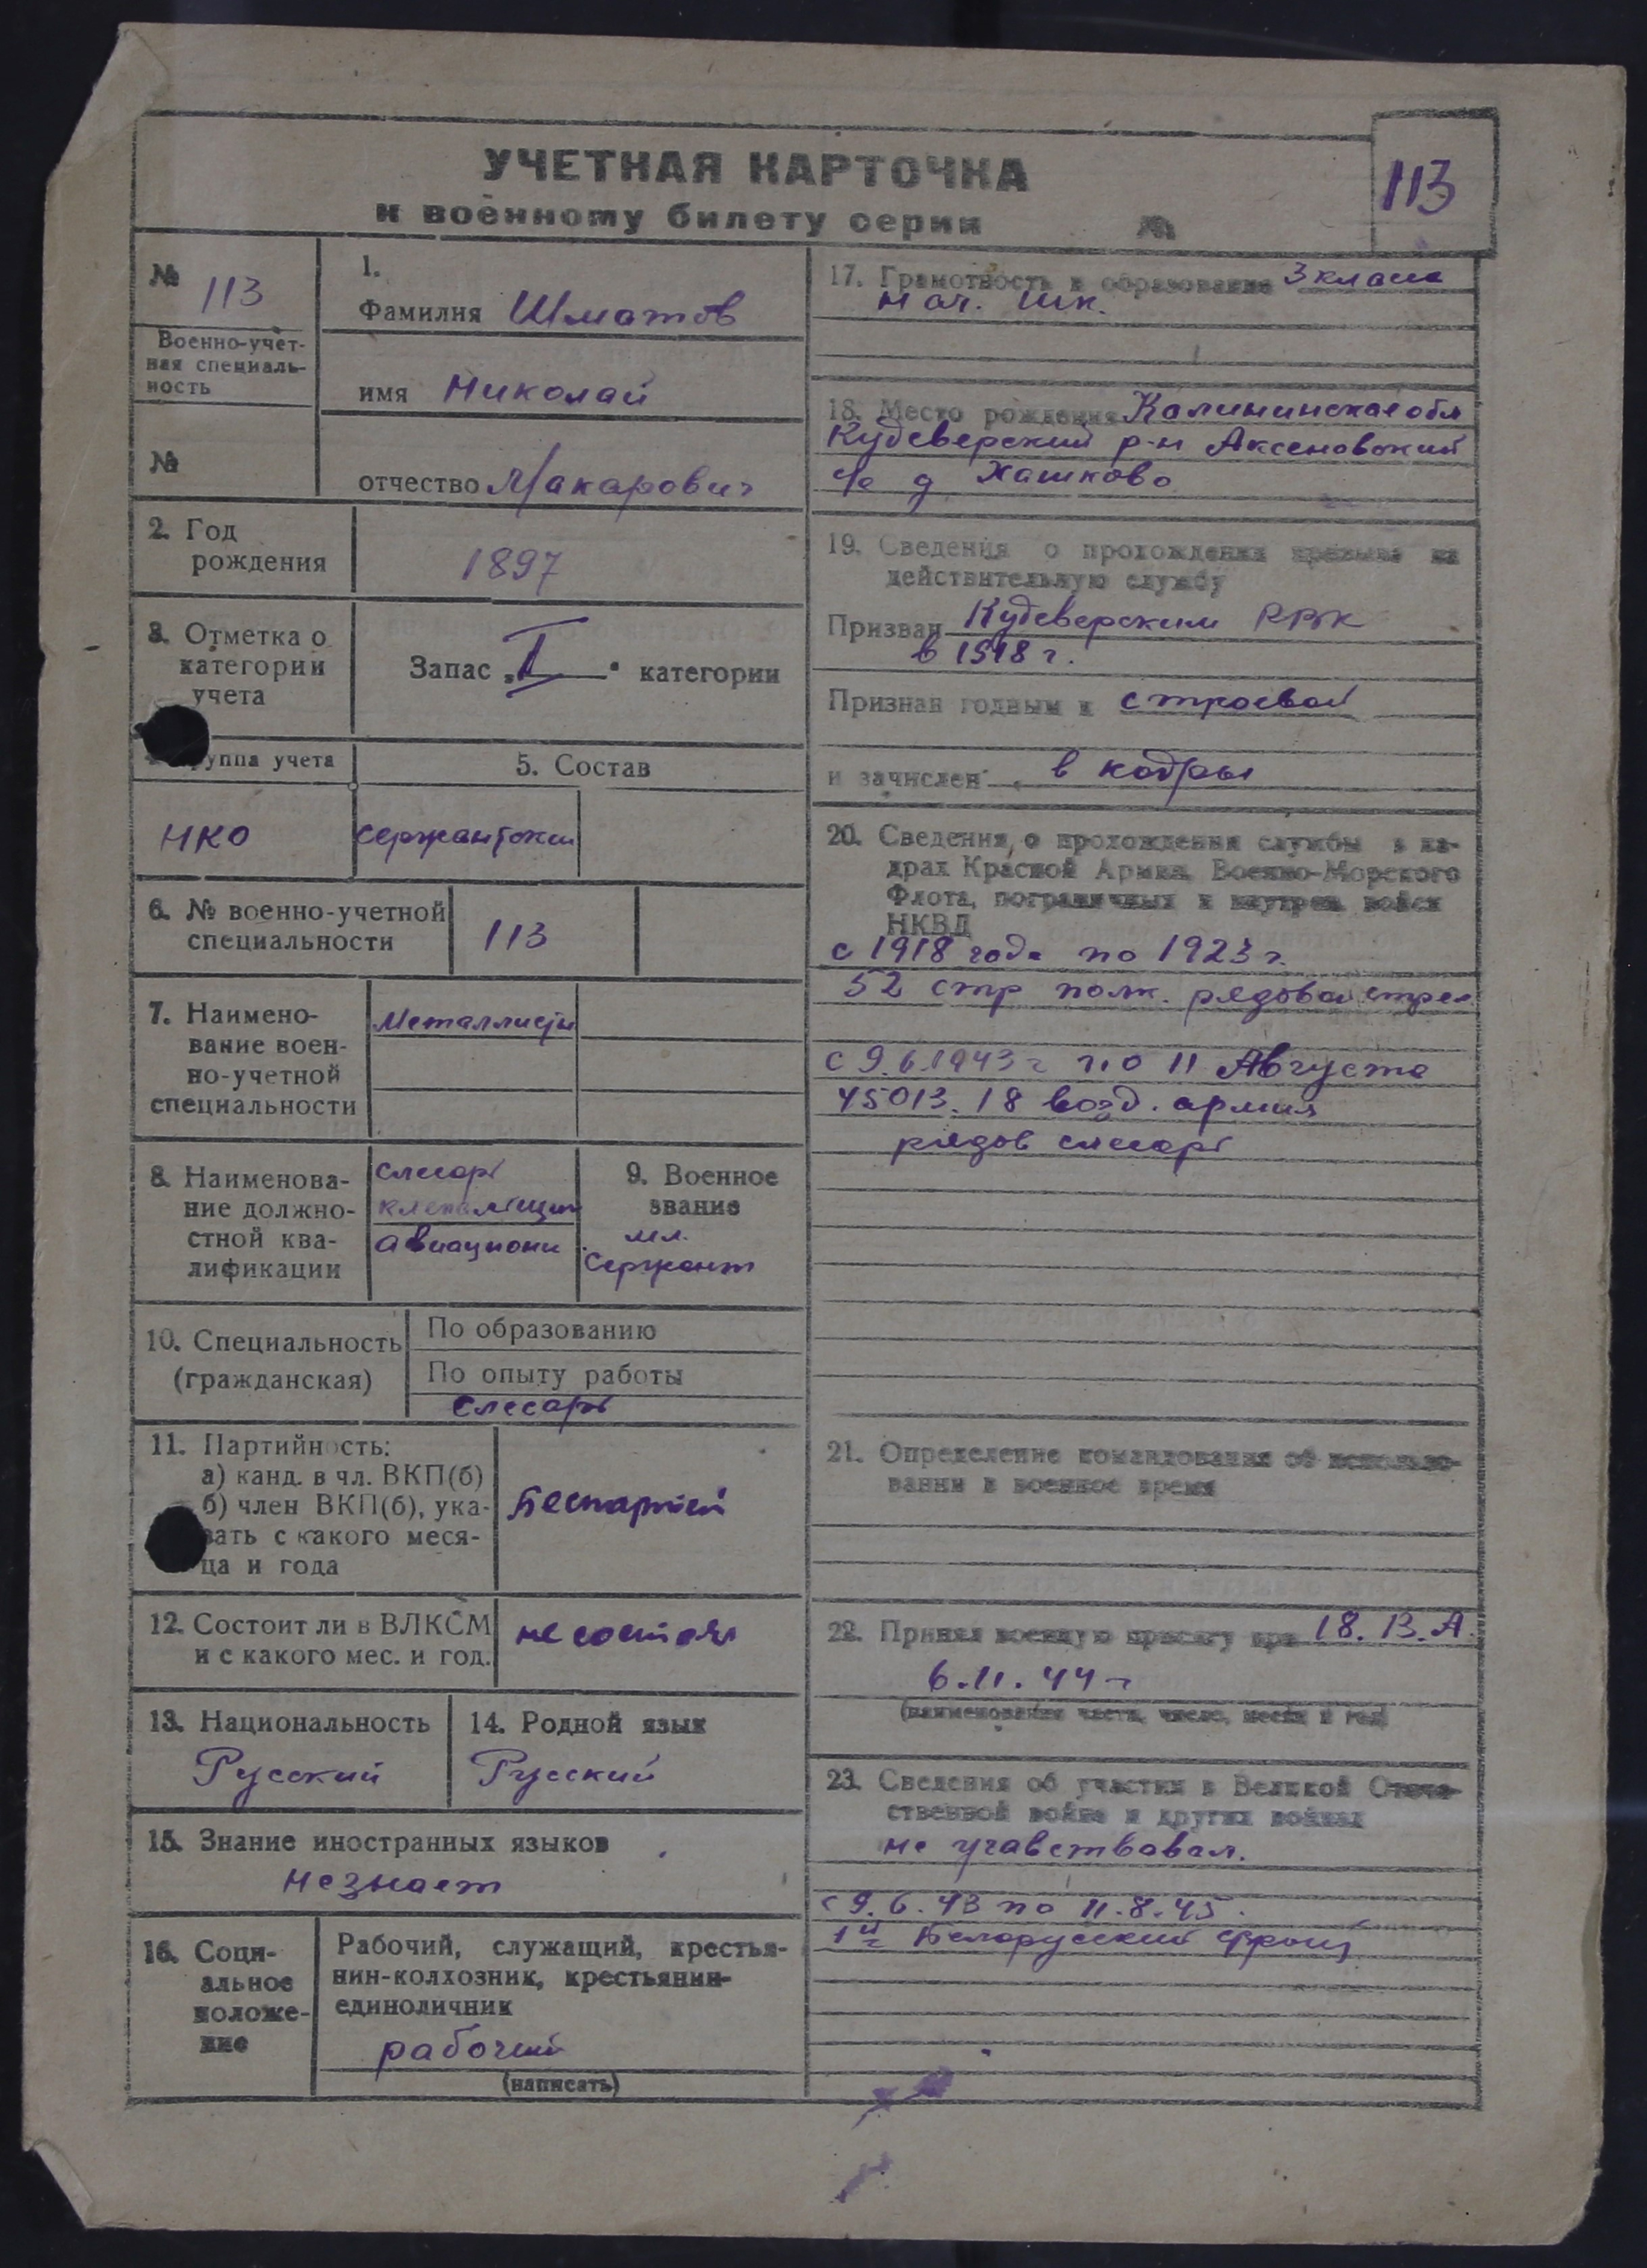 УЧЕТНАЯ КАРТОЧКА
к военному билету серии №
113
№ 113
Военно-учет-
ная специаль-
ность
№
1.
Фамилия Шматов
имя Николай
отчество Макарович
2. Год
рождения
1897
3. Отметка о
категории
учета
Запас „I" категории
группа учета
НКО
5. Состав
сержантский
6. № военно-учетной
специальности
113
7. Наимено-
вание воен-
но-учетной
специальности
Металлисты
8. Наименова-
ние должно-
стной ква-
лификации
слесарь
клепальщик
авиационн
9. Военное
звание
мл.
Сержант
10. Специальность
(гражданская)
По образованию
По опыту работы
Слесарь
11. Партийность:
а) канд. в чл. ВКП(б)
б) член ВКП(б), ука-
зать с какого меся-
ца и года
Беспартий
12. Состоит ли в ВЛКСМ
и с какого мес. и год.
не состоял
13. Национальность
Русский
14. Родной язык
Русский
15. Знание иностранных языков
не знает
16. Соци-
альное
положе-
ние
Рабочий, служащий, крестья-
нин-колхозник, крестьянин-
единоличник
рабочий
(написать)
17. Грамотность и образование 3 класса
нач. шк.
18. Место рождения Калининская обл
Кудеверский р-н Аксеновский
с/с д Хашково
19. Сведения о прохождении призыва на
действительную службу
Призван Кудеверским РВК
в 1918 г.
Признан годным к строевой
и зачислен в кадры
20. Сведения о прохождении службы в ка-
драх Красной Армии, Военно-Морского
Флота, пограничных и внутрен. войск
НКВД
с 1918 года по 1923 г.
52 стр полк. рядовой стрел
с 9.6.1943 г по 11 Августа
45013. 18 возд. армия
рядов слесарь
21. Определение командования об использо-
вании в военное время
22. Принял военную присягу при 18. В. А.
6.11.44 г
(наименование части, число, месяц и год)
23. Сведения об участии в Великой Отече-
ственной войне и других войнах
не учавствовал.
с 9.6.43 по 11.8.45.
1й Белорусский фронт